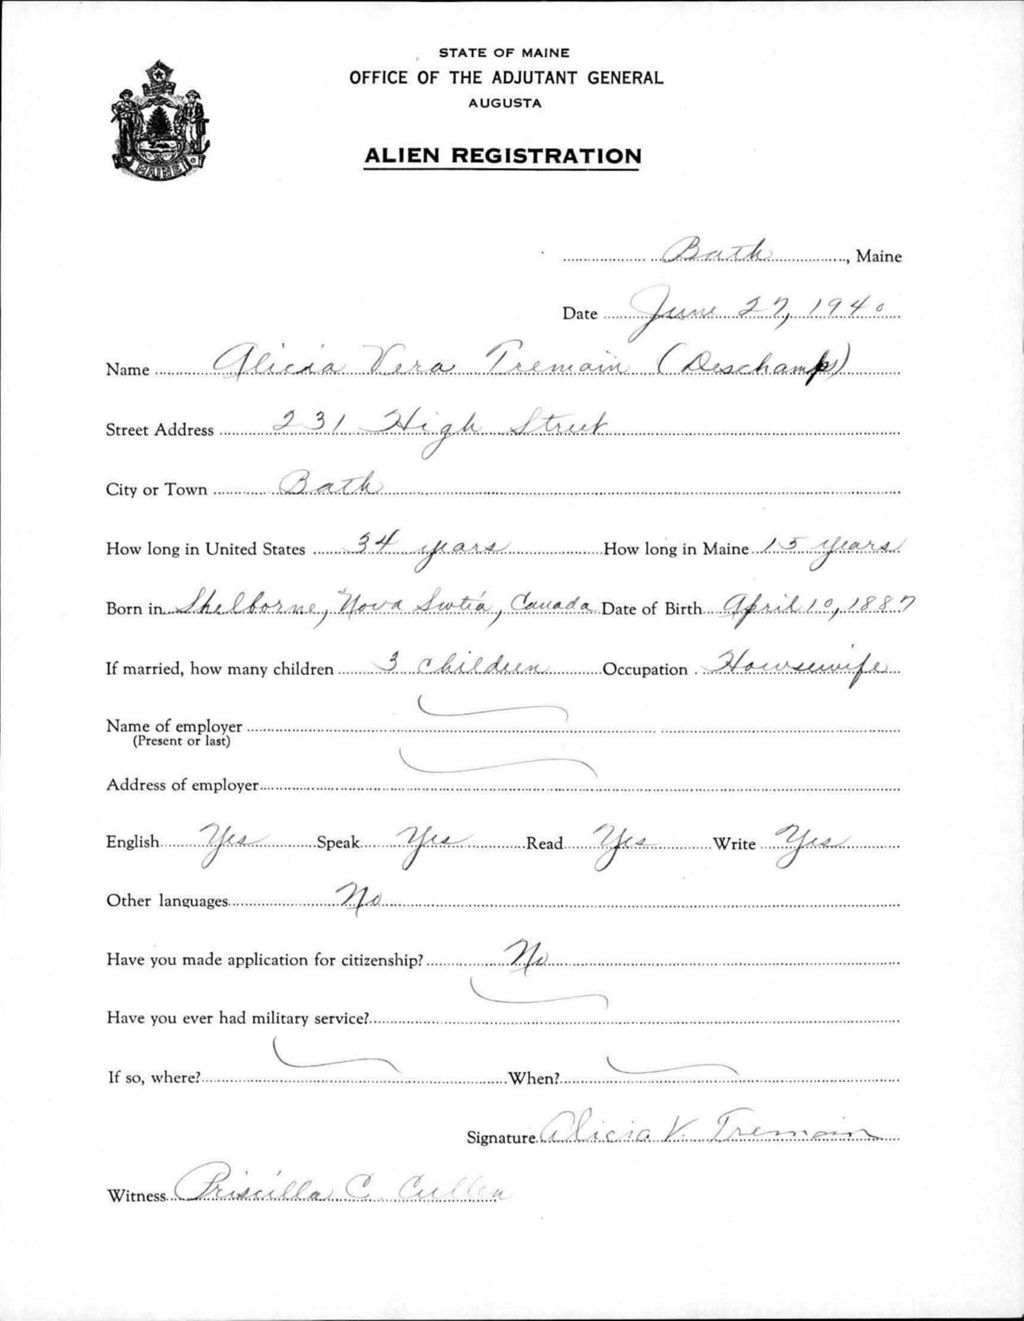 STATE OF MAINE
OFFICE OF THE ADJUTANT GENERAL
AUGUSTA
ALIEN REGISTRATION
MAINE
Bath, Maine
Date June 27, 1940
Name Alicia Vera Tremain (Deschamp)
Street Address 231 High Street
City or Town Bath
How long in United States 34 years How long in Maine 15 years
Born in Shelborne, Nova Scotia, Canada Date of Birth April 10, 1887
If married, how many children 3 children Occupation Housewife
Name of employer
(Present or last)
Address of employer
English Yes Speak Yes Read Yes Write Yes
Other languages No
Have you made application for citizenship? No
Have you ever had military service?
If so, where? When?
Signature Alicia V. Tremain
Witness Priscilla C. Cullen